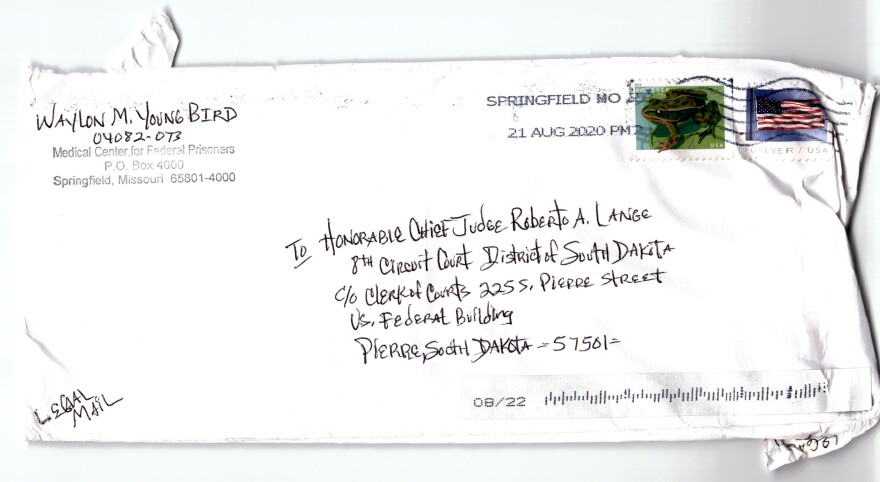 WAYLON M. YOUNG BIRD
04082-073
Medical Center for Federal Prisoners
P.O. Box 4000
Springfield, Missouri 65801-4000
SPRINGFIELD MO
21 AUG 2020 PM
USA
FOREVER / USA
TO HONORABLE CHIEF JUDGE ROBERTO A. LANGE
8TH CIRCUIT COURT DISTRICT of SOUTH DAKOTA
C/O CLERK of COURTS 225 S. PIERRE STREET
US. FEDERAL BUILDING
PIERRE, SOUTH DAKOTA - 57501-
LEGAL
MAIL
08/22